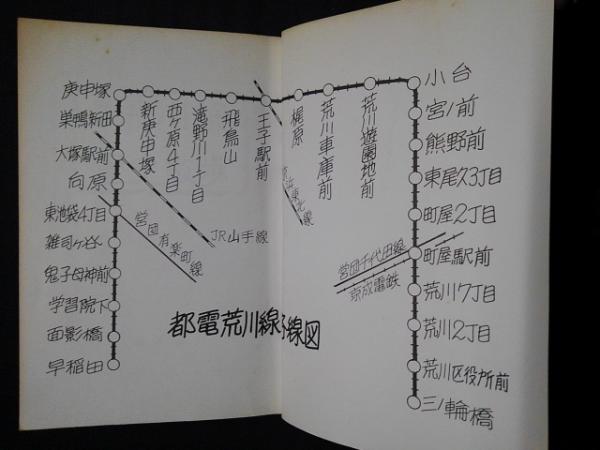 庚申塚
巣鴨新田
大塚駅前
向原
東池袋4丁目
雑司ヶ谷
鬼子母神前
学習院下
面影橋
早稲田
新庚申塚
西ヶ原4丁目
滝野川1丁目
飛鳥山
王子駅前
梶原
荒川車庫前
荒川遊園地前
小台
宮ノ前
熊野前
東尾久3丁目
町屋2丁目
町屋駅前
荒川7丁目
荒川2丁目
荒川区役所前
三ノ輪橋
営団有楽町線
JR山手線
浜東北線
営団千代田線
京成電鉄
都電荒川線
線図